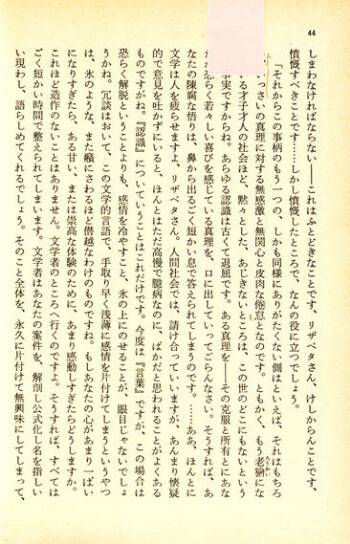 44
しまわなければならない――これはふとどきなことです、リザベタさん、けしからんことです、
憤慨すべきことです……しかし憤慨したところで、なんの役に立つでしょう。
「それからこの事柄のもう一つの、しかも同様にありがたくない側はといえば、それはもちろ
いっさいの真理に対する無感激と無関心と皮肉な倦怠となのです。ともかく、もう老獪にな
いる才子才人の社会ほど、黙々とした、あじきないところは、この世のどこにもないという
事実ですからね。あらゆる認識は古くて退屈です。ある真理を――その克服と所有とにあな
たが恐らく若々しい喜びを感じている真理を、口に出していってごらんなさい。そうすれば、あ
なたの陳腐な悟りは、鼻から出るごく短かい息で答えられてしまうのです。……ああ、ほんとに
文学は人を疲らせますよ、リザベタさん。人間社会では、請け合っていいますが、あんまり懐疑
的で意見を吐かずにいると、ほんとはただ高慢で臆病なのに、ばかだと思われることがよくある
ものですがね。『認識』についていうことはこれだけです。今度は『言葉』ですが、この場合は
恐らく解脱ということよりも、感情を冷やすこと、氷の上にのせることが、眼目ではないでしょ
うかね。冗談はおいて、この文学的言語で、手取り早く浅薄に感情を片付けてしまうというやつ
は、氷のような、また癪にさわるほど僭越なわけのものですね。もしあなたの心があまり一ぱい
になりすぎたら、ある甘い、または崇高な体験のために、あまり感動しすぎたらどうしますか。
これほど造作のないことはありません。文学者のところへ行くのですよ。そうすれば、すべては
ごく短かい時間で整えられてしまいます。文学者はあなたの案件を、解剖し公式化し名を指しい
い現わし、語らしめてくれるでしょう。そのこと全体を、永久に片付けて無興味にしてしまって、